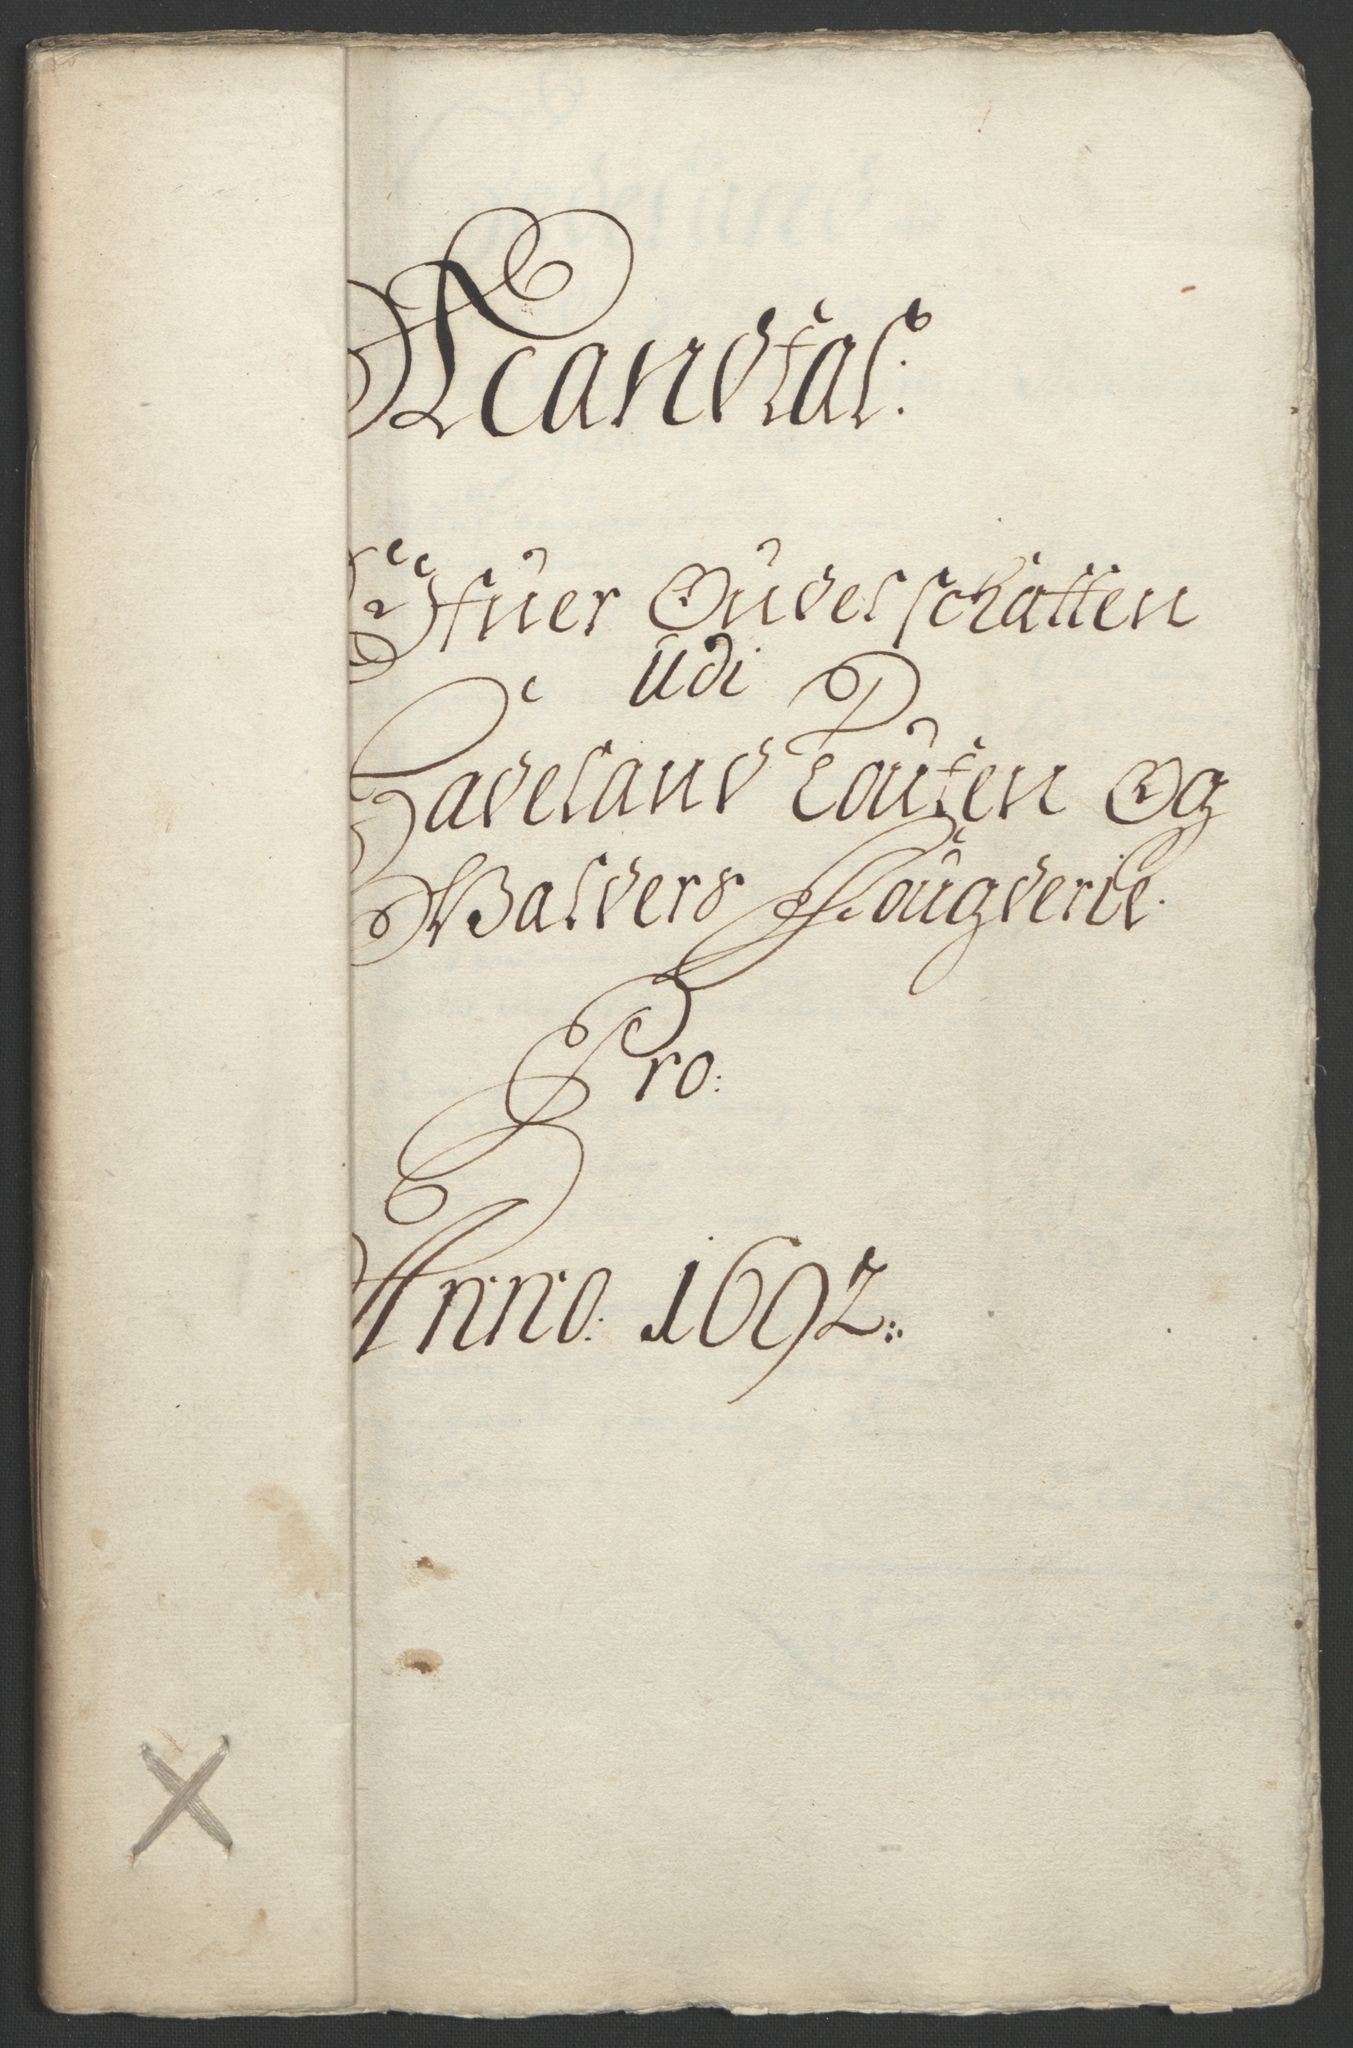 Mandtal.
Ofuer Oüdelschatten
Udi
Hadeland Toüten Og
Valders Fougderie.
Pro:
Anno: 1692.